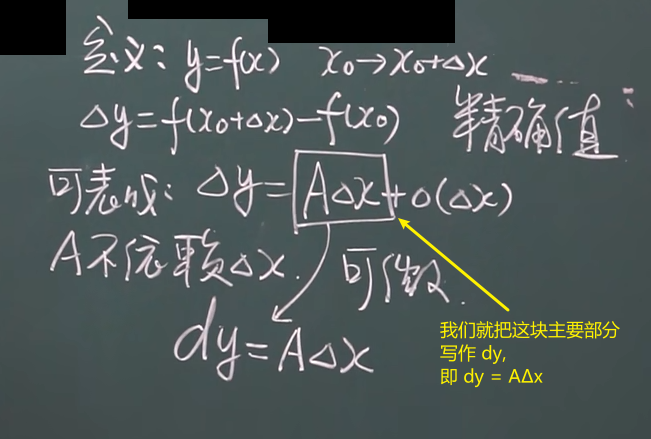 定义：y=f(x) x₀→x₀+Δx
Δy=f(x₀+Δx)-f(x₀) 精确值
可表成：Δy=AΔx+o(Δx)
A不依赖Δx. 可微.
dy=AΔx
我们就把这块主要部分
写作 dy,
即 dy = AΔx